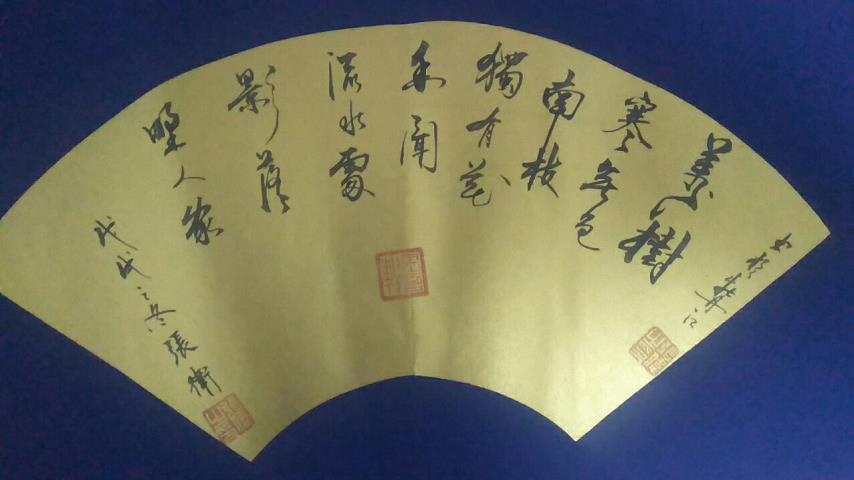 萬樹
寒無色
南枝
獨有花
香聞
流水處
影落
野人家
戊戌之冬張衛